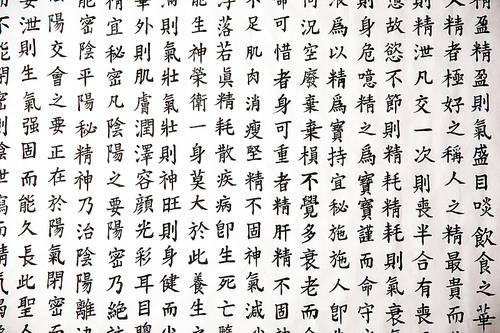 精盈精盈則氣盛目啖飲食之華
人精者極好之稱人之精最貴而
則精泄凡交一次則喪半合有喪
故慾不節則精耗精耗則氣衰
則身危噫精之爲寶寶謹而命守
爲以精爲寶持宜秘施施人卽
何況空廢棄棄損不覺多衰老而
可惜者身可重者精肝精不固
不足肌肉消瘦堅精不固神氣減
浮落若眞精耗散疾病卽生死亡
能生神榮衛一身莫大於此養生
滿則氣壯氣壯則神旺則身健而
外則肌膚潤澤容顔光彩耳目
精宜秘密凡陰陽之要陽密乃絕
能密陰平陽秘精神乃治陰陽離
陽交會之要正在於陽氣閉密而
泄則生氣强固而能久長此聖人